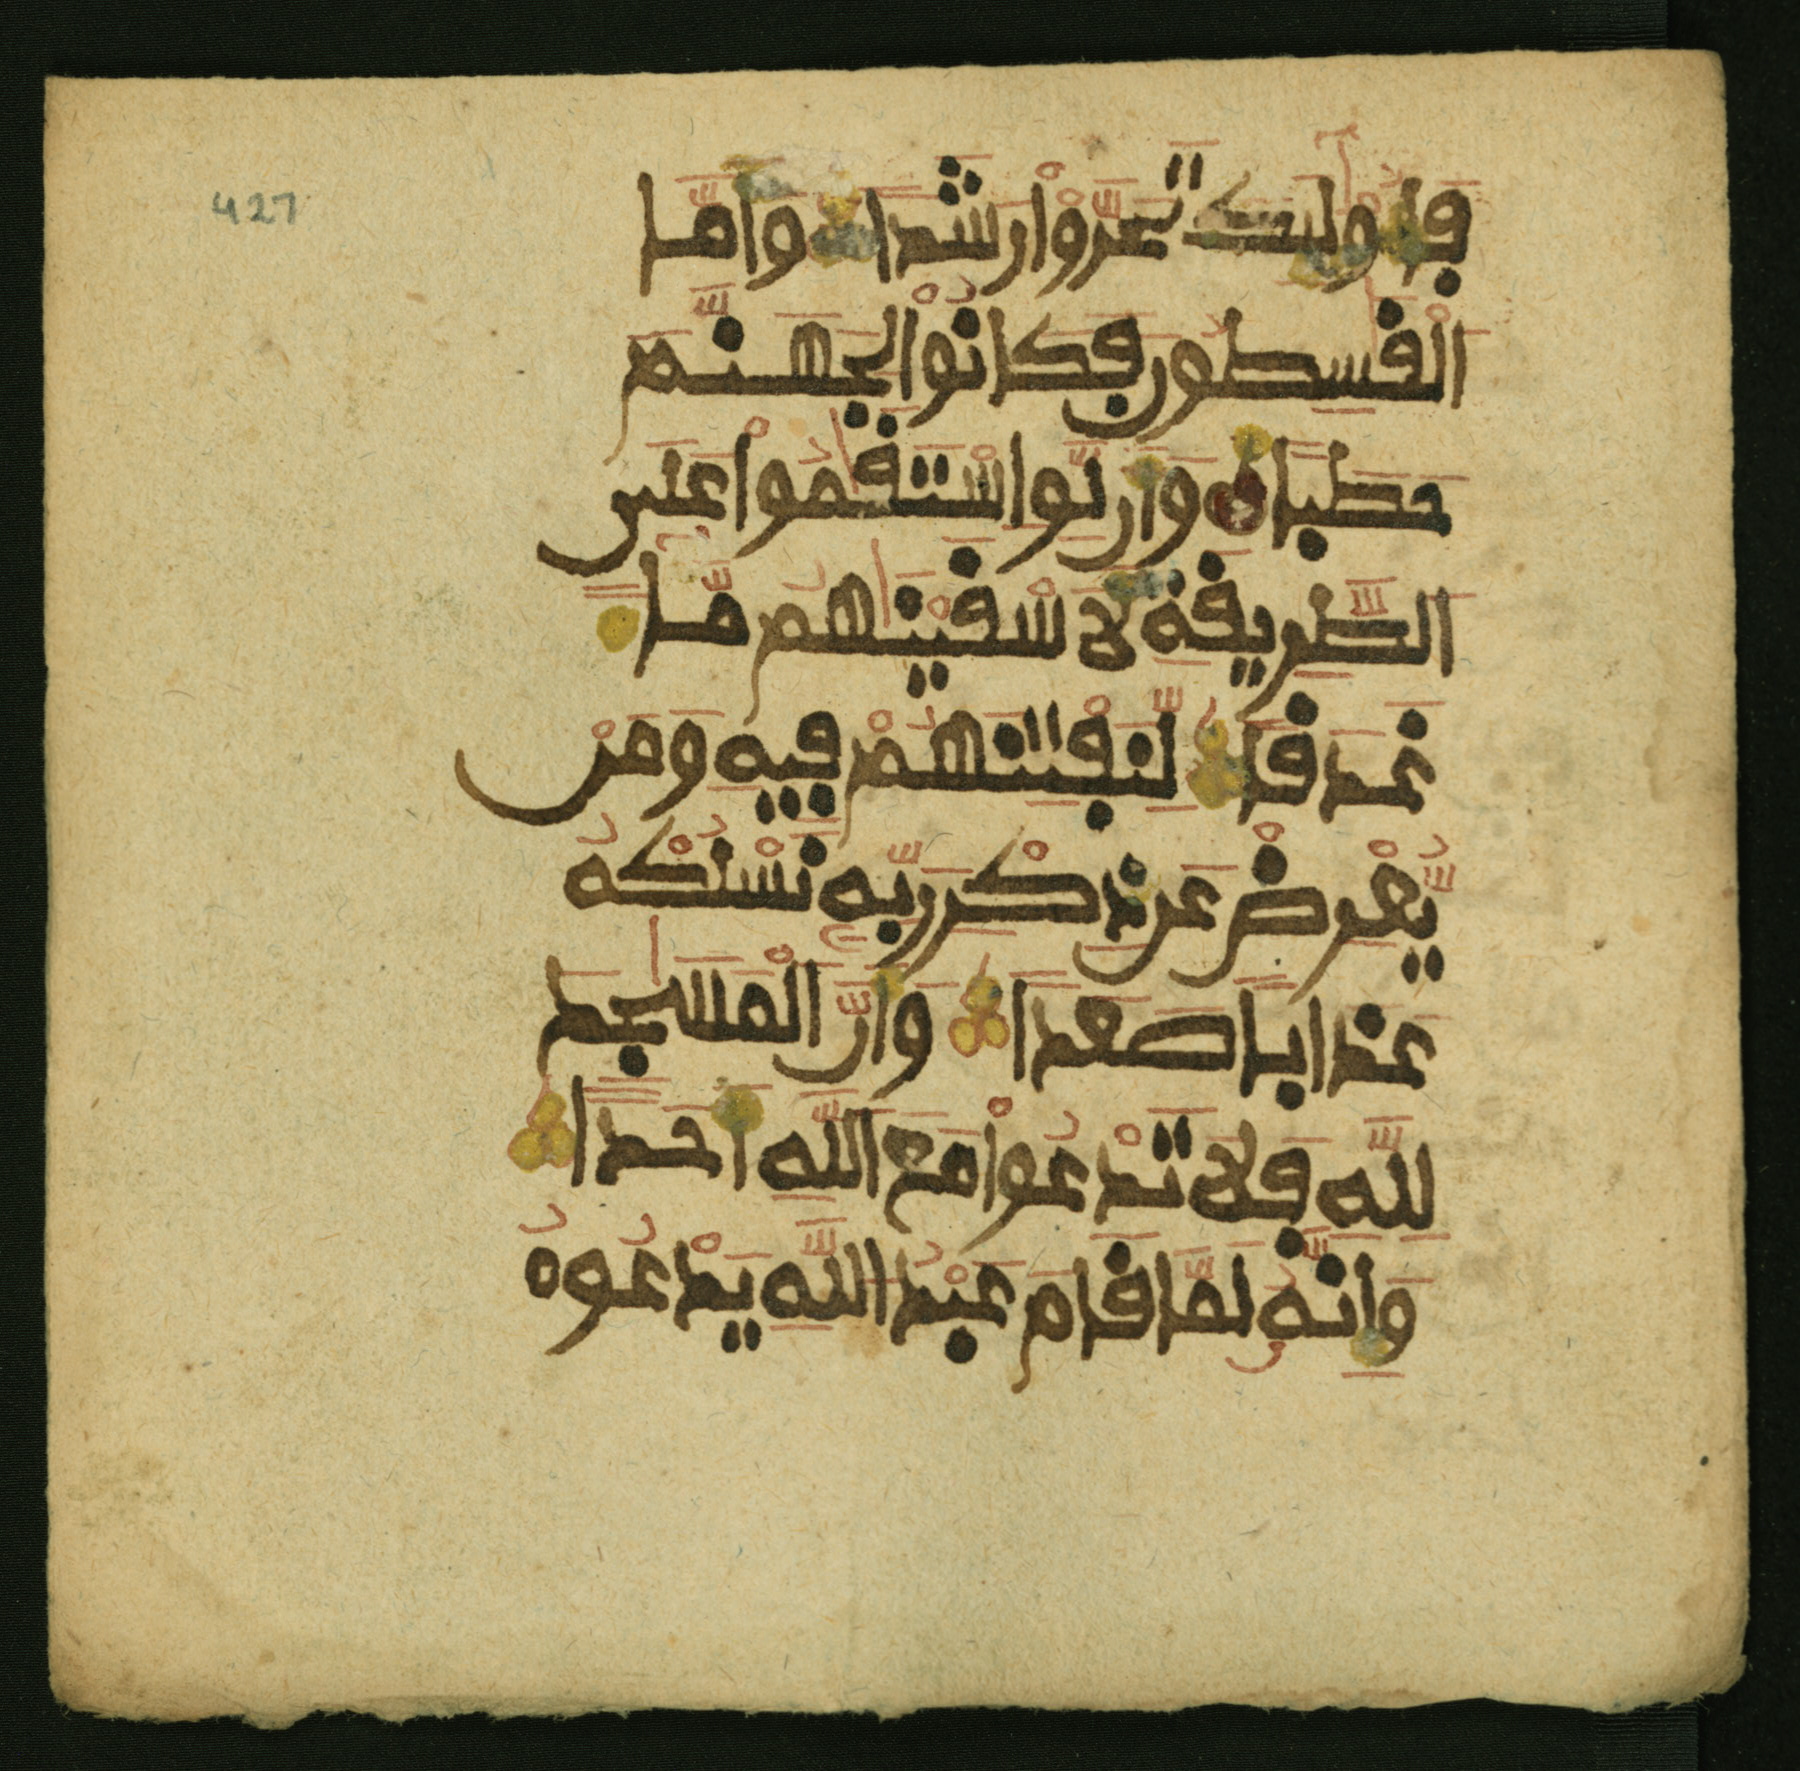 427
فاولئك تحرّوا رشدا وامّا
القسطون فكانوا لجهنّم
حطبا وان لّو استقموا على
الطّريقة لاسقينهم مّا
غدقا لّنفتنهم فيه ومن
يّعرض عن ذكر ربّه نسلكه
عذابا صعدا وانّ المسجد
للّه فلا تدعوا مع اللّه احدا
وانّه لمّا قام عبد اللّه يدعوه